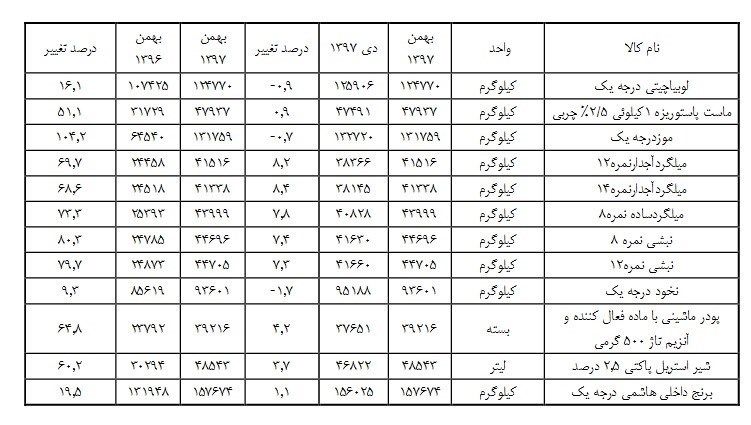 نام کالا واحد بهمن ۱۳۹۷ دی ۱۳۹۷ درصد تغییر بهمن ۱۳۹۷ بهمن ۱۳۹۶ درصد تغییر
لوبیاچیتی درجه یک کیلوگرم ۱۲۴۷۷۰ ۱۲۵۹۰۶ -۰,۹ ۱۲۴۷۷۰ ۱۰۷۴۲۵ ۱۶,۱
ماست پاستوریزه ۱کیلوئی ۲/۵٪ چربی کیلوگرم ۴۷۹۳۷ ۴۷۴۹۱ ۰,۹ ۴۷۹۳۷ ۳۱۷۲۹ ۵۱,۱
موزدرجه یک کیلوگرم ۱۳۱۷۵۹ ۱۳۲۷۲۰ -۰,۷ ۱۳۱۷۵۹ ۶۴۵۴۰ ۱۰۴,۲
میلگردآجدارنمره۱۲ کیلوگرم ۴۱۵۱۶ ۳۸۳۶۶ ۸,۲ ۴۱۵۱۶ ۲۴۴۵۸ ۶۹,۷
میلگردآجدارنمره۱۴ کیلوگرم ۴۱۳۳۸ ۳۸۱۴۵ ۸,۴ ۴۱۳۳۸ ۲۴۵۱۸ ۶۸,۶
میلگردساده نمره۸ کیلوگرم ۴۳۹۹۹ ۴۰۸۲۸ ۷,۸ ۴۳۹۹۹ ۲۵۳۹۳ ۷۳,۳
نبشی نمره ۸ کیلوگرم ۴۴۶۹۶ ۴۱۶۳۰ ۷,۴ ۴۴۶۹۶ ۲۴۷۸۵ ۸۰,۳
نبشی نمره۱۲ کیلوگرم ۴۴۷۰۵ ۴۱۶۶۰ ۷,۳ ۴۴۷۰۵ ۲۴۸۷۳ ۷۹,۷
نخود درجه یک کیلوگرم ۹۳۶۰۱ ۹۵۱۸۸ -۱,۷ ۹۳۶۰۱ ۸۵۶۱۹ ۹,۳
پودر ماشینی با ماده فعال کننده و
آنزیم تاژ ۵۰۰ گرمی بسته ۳۹۲۱۶ ۳۷۶۵۱ ۴,۲ ۳۹۲۱۶ ۲۳۷۹۲ ۶۴,۸
شیر استریل پاکتی ۲,۵ درصد لیتر ۴۸۵۴۳ ۴۶۸۲۲ ۳,۷ ۴۸۵۴۳ ۳۰۲۹۴ ۶۰,۲
برنج داخلی هاشمی درجه یک کیلوگرم ۱۵۷۶۷۴ ۱۵۶۰۲۵ ۱,۱ ۱۵۷۶۷۴ ۱۳۱۹۴۸ ۱۹,۵